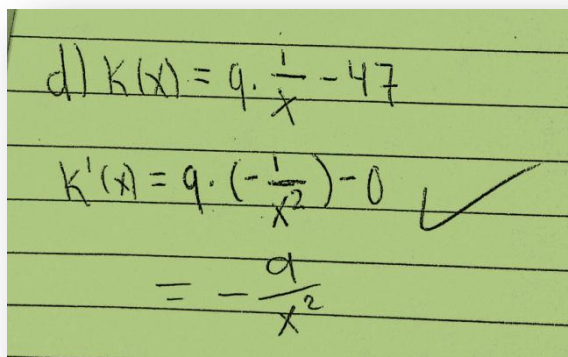 d) k(x) = 9 · 1/x - 47
k'(x) = 9 · (-1/x²) - 0 ✓
= - 9/x²